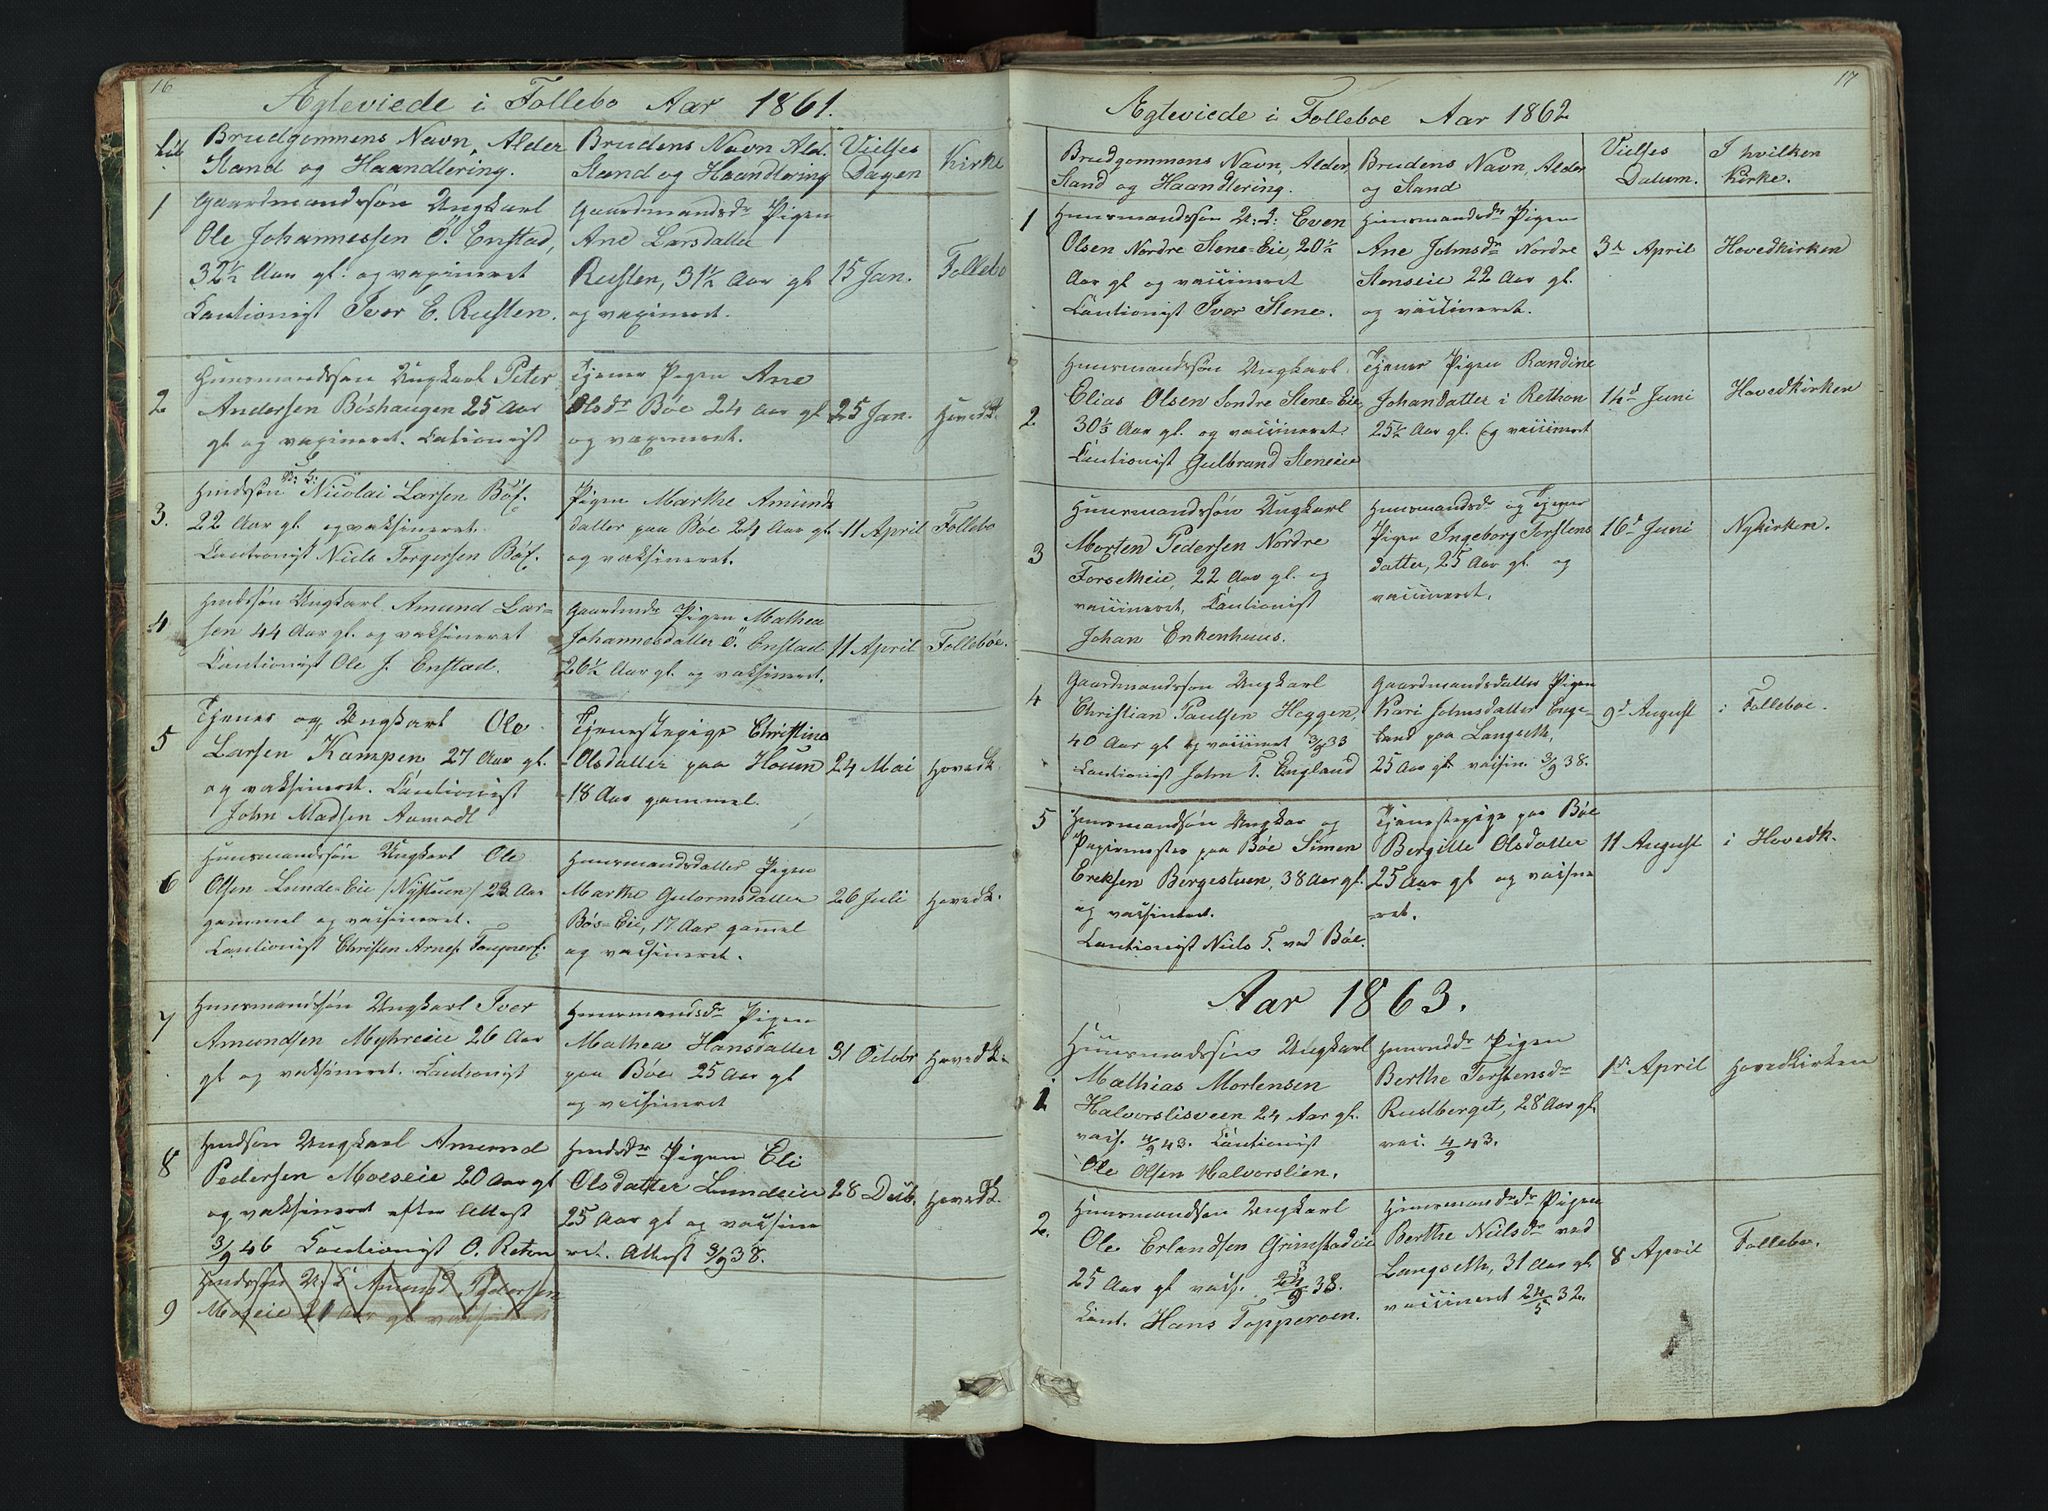 16
Ægteviede i Follebo Aar 1861.
Brudgommens Navn, Alder
Stand og Haandtering.
Brudens Navn Ald.
Stand og Haandtering
Vielses
Dagen
Kirke
1
Gaardmandssøn Ungkarl
Ole Johannessen Ö. Enstad,
32½ Aar gl. og vaxineret
Cautionist Iver E. Rusten.
Gaardmandsdr Pigen
Ane Larsdatter
Rusten, 31½ Aar gl
og vaxineret.
15 Jan.
Follebo
2
Huusmandssøn Ungkarl Peter
Andersen Böshaugen 25 Aar
gl og vaxineret. Cationist
Tjener Pigen Ane
Olsdr Böe 24 Aar gl
og vaxineret.
25 Jan.
Hovedk.
3.
Hmdssøn U. K. Nicolai Larsen Böf.
22 Aar gl. og vaksineret.
Cautionist Niels Torgersen Böf.
Pigen Marthe Amunds
datter paa Böe 24 Aar gl.
og vaksineret.
11 April
Follebo
4
Hmdssøn Ungkarl Amund Lar-
sen 44 Aar gl. og vaksineret
Cautionist Ole J. Enstad.
Gaardmdr Pigen Mathea
Johannesdatter Ö Enstad
26½ Aar gl. og vaksineret.
11 April
Follebøe.
5
Tjener og Ungkarl Ole
Larsen Kampen 27 Aar gl.
og vaksineret. Cautionist
John Madsen Aamodt
Tjenestepige Christine
Olsdatter paa Houn
18 Aar gammel.
24 Mai
Hovedk.
6
Huusmandssøn Ungkarl Ole
Olsen Lunde-Eie /Nystuen/ 23 Aar
gammel og vacsineret.
Cautionist Christen Arnes.
Huusmandsdatter Pigen
Marthe Gulormsdatter
Bös-Eie, 17 Aar gammel
og vacsineret.
26 Juli
Hovedk.
7
Huusmandssøn Ungkarl Iver
Amundsen Myhreeie 26 Aar
gl og vaksineret. Cautionist
Huusmandsdr Pigen
Mathea Hansdatter
paa Böe 25 Aar gl
og vacsineret
31 Octobr
Hovedk.
8
Hmdsøn Ungkarl Amund
Pedersen Moeseie 20 Aar gl
og vaksineret efter Attest
3/9 46 Cautionist O. Reten
Hmdsdr Pigen Eli
Olsdatter Lundeeie
25 Aar gl og vacsine
ret. Attest 3/9 38.
28 Decb.
Hovedk.
9
Hmdssøn U. K. Amund Pedersen
Moseie 21 Aar gl vacsineret
17
Ægteviede i Folleboe Aar 1862
Brudgommens Navn, Alder,
Stand og Haandtering.
Brudens Navn, Alder
og Stand
Vielses
Datum.
I hvilken
Kirke.
1
Huusmandssøn U: K: Even
Olsen Nordre Stene-Eie, 20½
Aar gl og vaccineret
Cautionist Iver Stene.
Huusmandsdr Pigen
Ane Johnsdr Nordre
Steneeie 22 Aar gl.
og vaccineret.
3d April
Hovedkirken
2
Huusmandssøn Ungkarl
Elias Olsen Söndre Stene-Eie
30½ Aar gl. og vaccineret.
Cautionist Gulbrand Steneeie
Tjener Pigen Randine
Johansdatter i Rethon
25½ Aar gl. og vaccineret
14d Juni
Hovedkirken
3
Huusmandssøn Ungkarl
Morten Pedersen Nordre
Forsetheie, 22 Aar gl. og
vaccineret, Cautionist
Johan Enkenhuus.
Huusmandsdr og Tjener
Pige Ingeborg Torstens
datter, 25 Aar gl. og
vaccineret.
16d Juni
Nykirken.
4
Gaardmandssøn Ungkarl
Christian Paulsen Heggen,
40 Aar gl og vaccineret 3/9 33
Cautionist John T. England
Gaardmandsdatter Pigen
Kari Johnsdatter Enge-
land paa Langseth,
25 Aar gl. vacsin. 3/9 38.
9d August
i Folleboe.
5
Huusmandssøn Ungkar og
Papirmester paa Böe Simen
Ereksen Bergestuen, 38 Aar gl.
og vacsineret.
Cautionist Niels T. ved Böe.
Tjenestepige paa Böe
Bergitte Olsdatter
25 Aar gl og vacsine
ret.
11 August
i Hovedk.
Aar 1863.
1
Huusmandssøn Ungkarl
Mathias Mortensen
Halvorslisveen 24 Aar gl.
vacs. 4/9 43. Cautionist
Ole Olsen Halvorslien.
Huusmdsdr Pigen
Berthe Torstensdr
Rustberget, 28 Aar gl.
vac. 4/9 43.
1st April
Hovedkirken
2.
Huusmandssøn Ungkarl
Ole Erlandsen Grimstadeie
25 Aar gl vacs. 24/9 38.
Caut. Hans Topperoen.
Huusmandsdr Pigen
Berthe Nielsdr ved
Langseth, 31 Aar gl.
vaccineret 24/5 32.
8 April
Follebo.